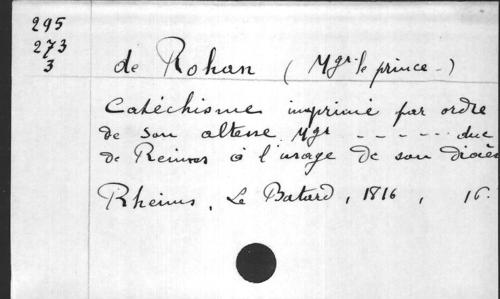 295
273
3
de Rohan (Mgr le prince -)
Catéchisme imprimé par ordre
de son altesse Mgr - - - - - duc
de Reimes à l'usage de son diocès
Rheims, Le Batard, 1816, 16.